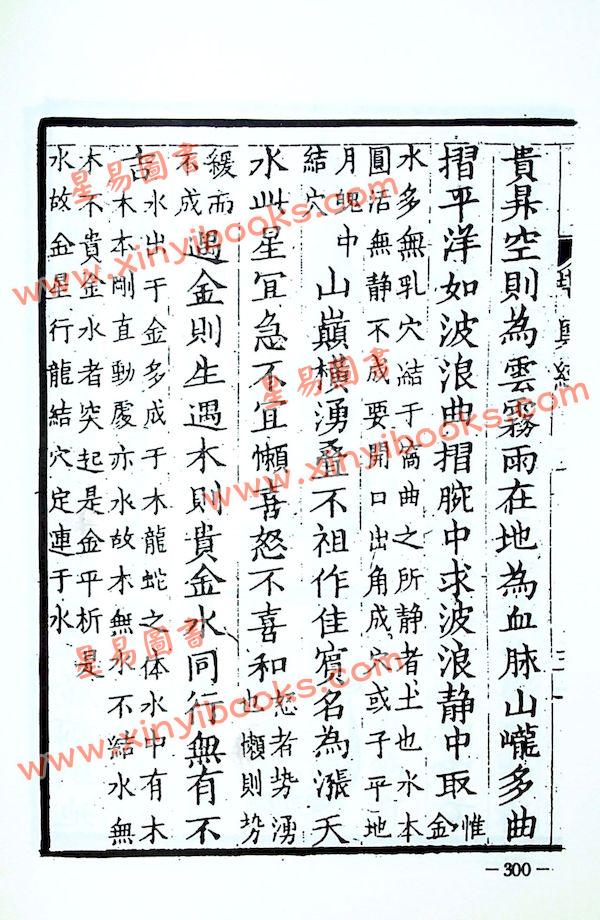 貴昇空則為雲霧雨在地為血脉山巄多曲
摺平洋如波浪曲摺腕中求波浪静中取惟金
水多無乳穴結于窩曲之所静者土也水本
圓活無静不成要開口出角成穴或于平地
月魄中
結穴
山巔横湧叠不祖作佳賓名為漲天
水此星宜急不宜懶喜怒不喜和
怒者势湧
也懶則势
緩而
不成
遇金則生遇木則貴金水同行無有不
吉
水出于金多成于木龍蛇之体水中有木
木本剛直動處亦水故木無水不結水無
木不貴金水者突起是金平析是
水故金星行龍結穴定連于水
－300－
星易圖書
www.xinyibooks.com
星易圖書
www.xinyibooks.com
星易圖書
www.xinyibooks.com